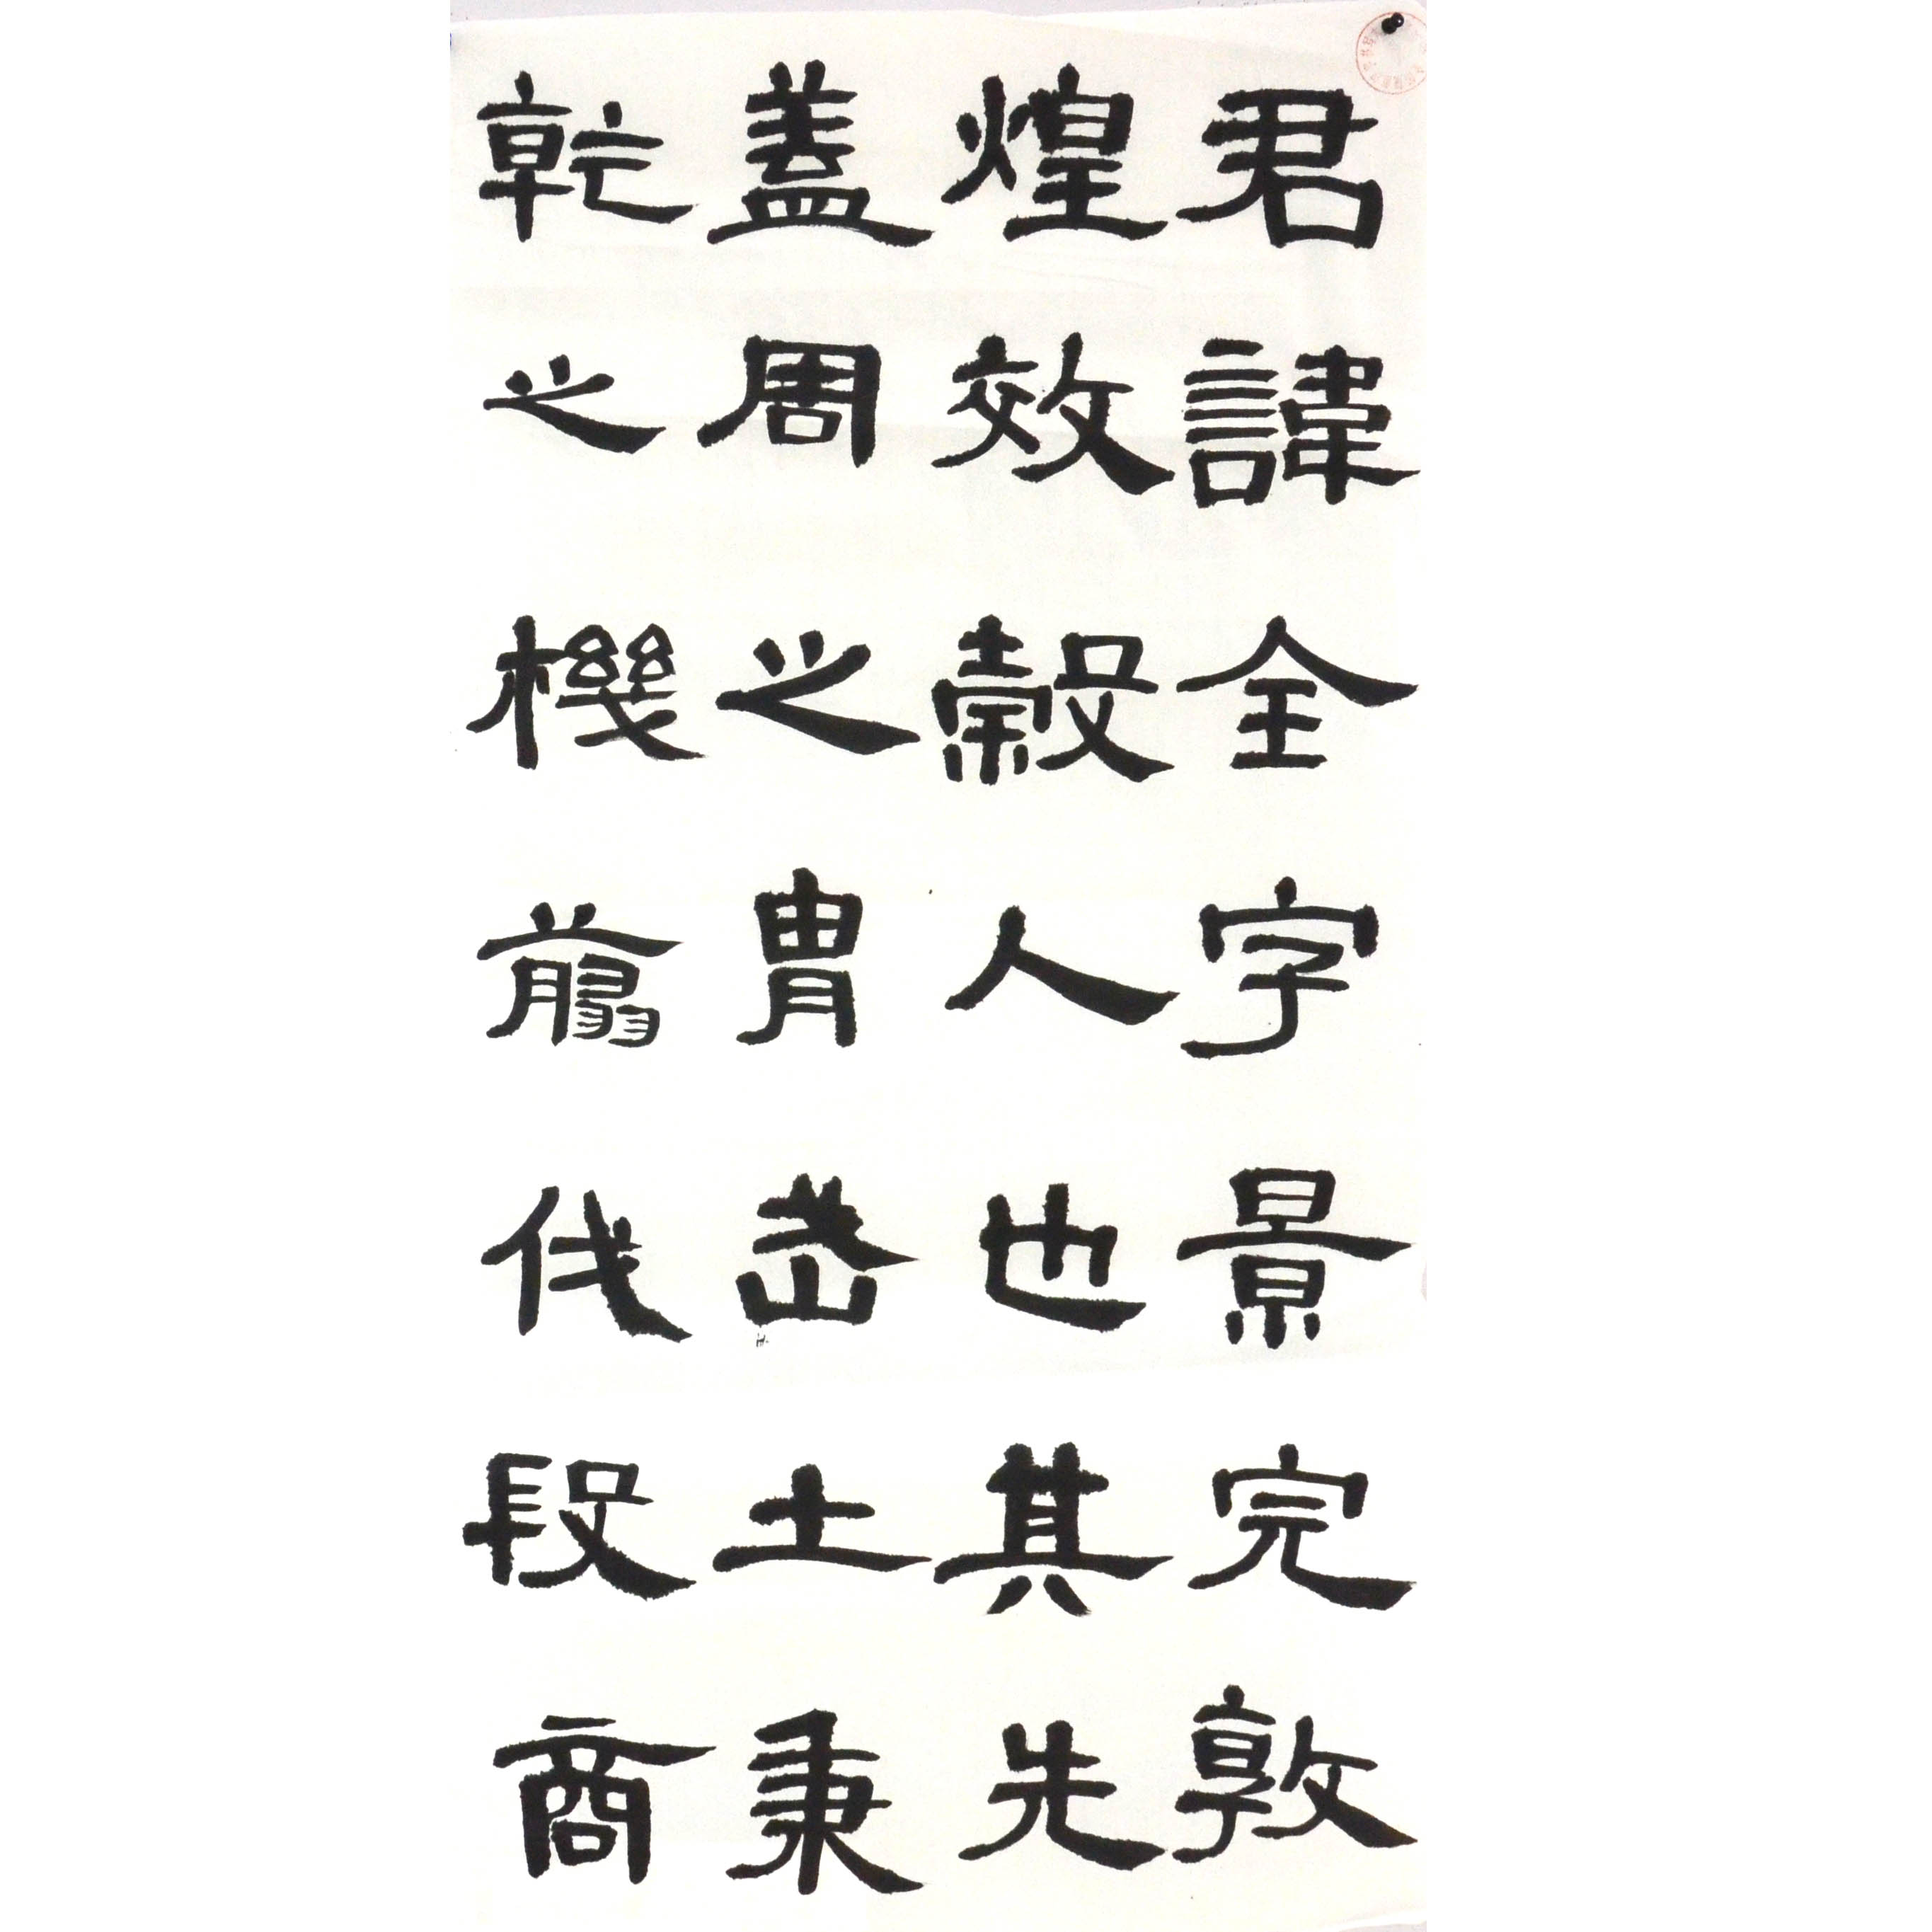 君諱全字景完敦
煌效穀人也其先
蓋周之胄武土秉
乾之機翦伐殷商